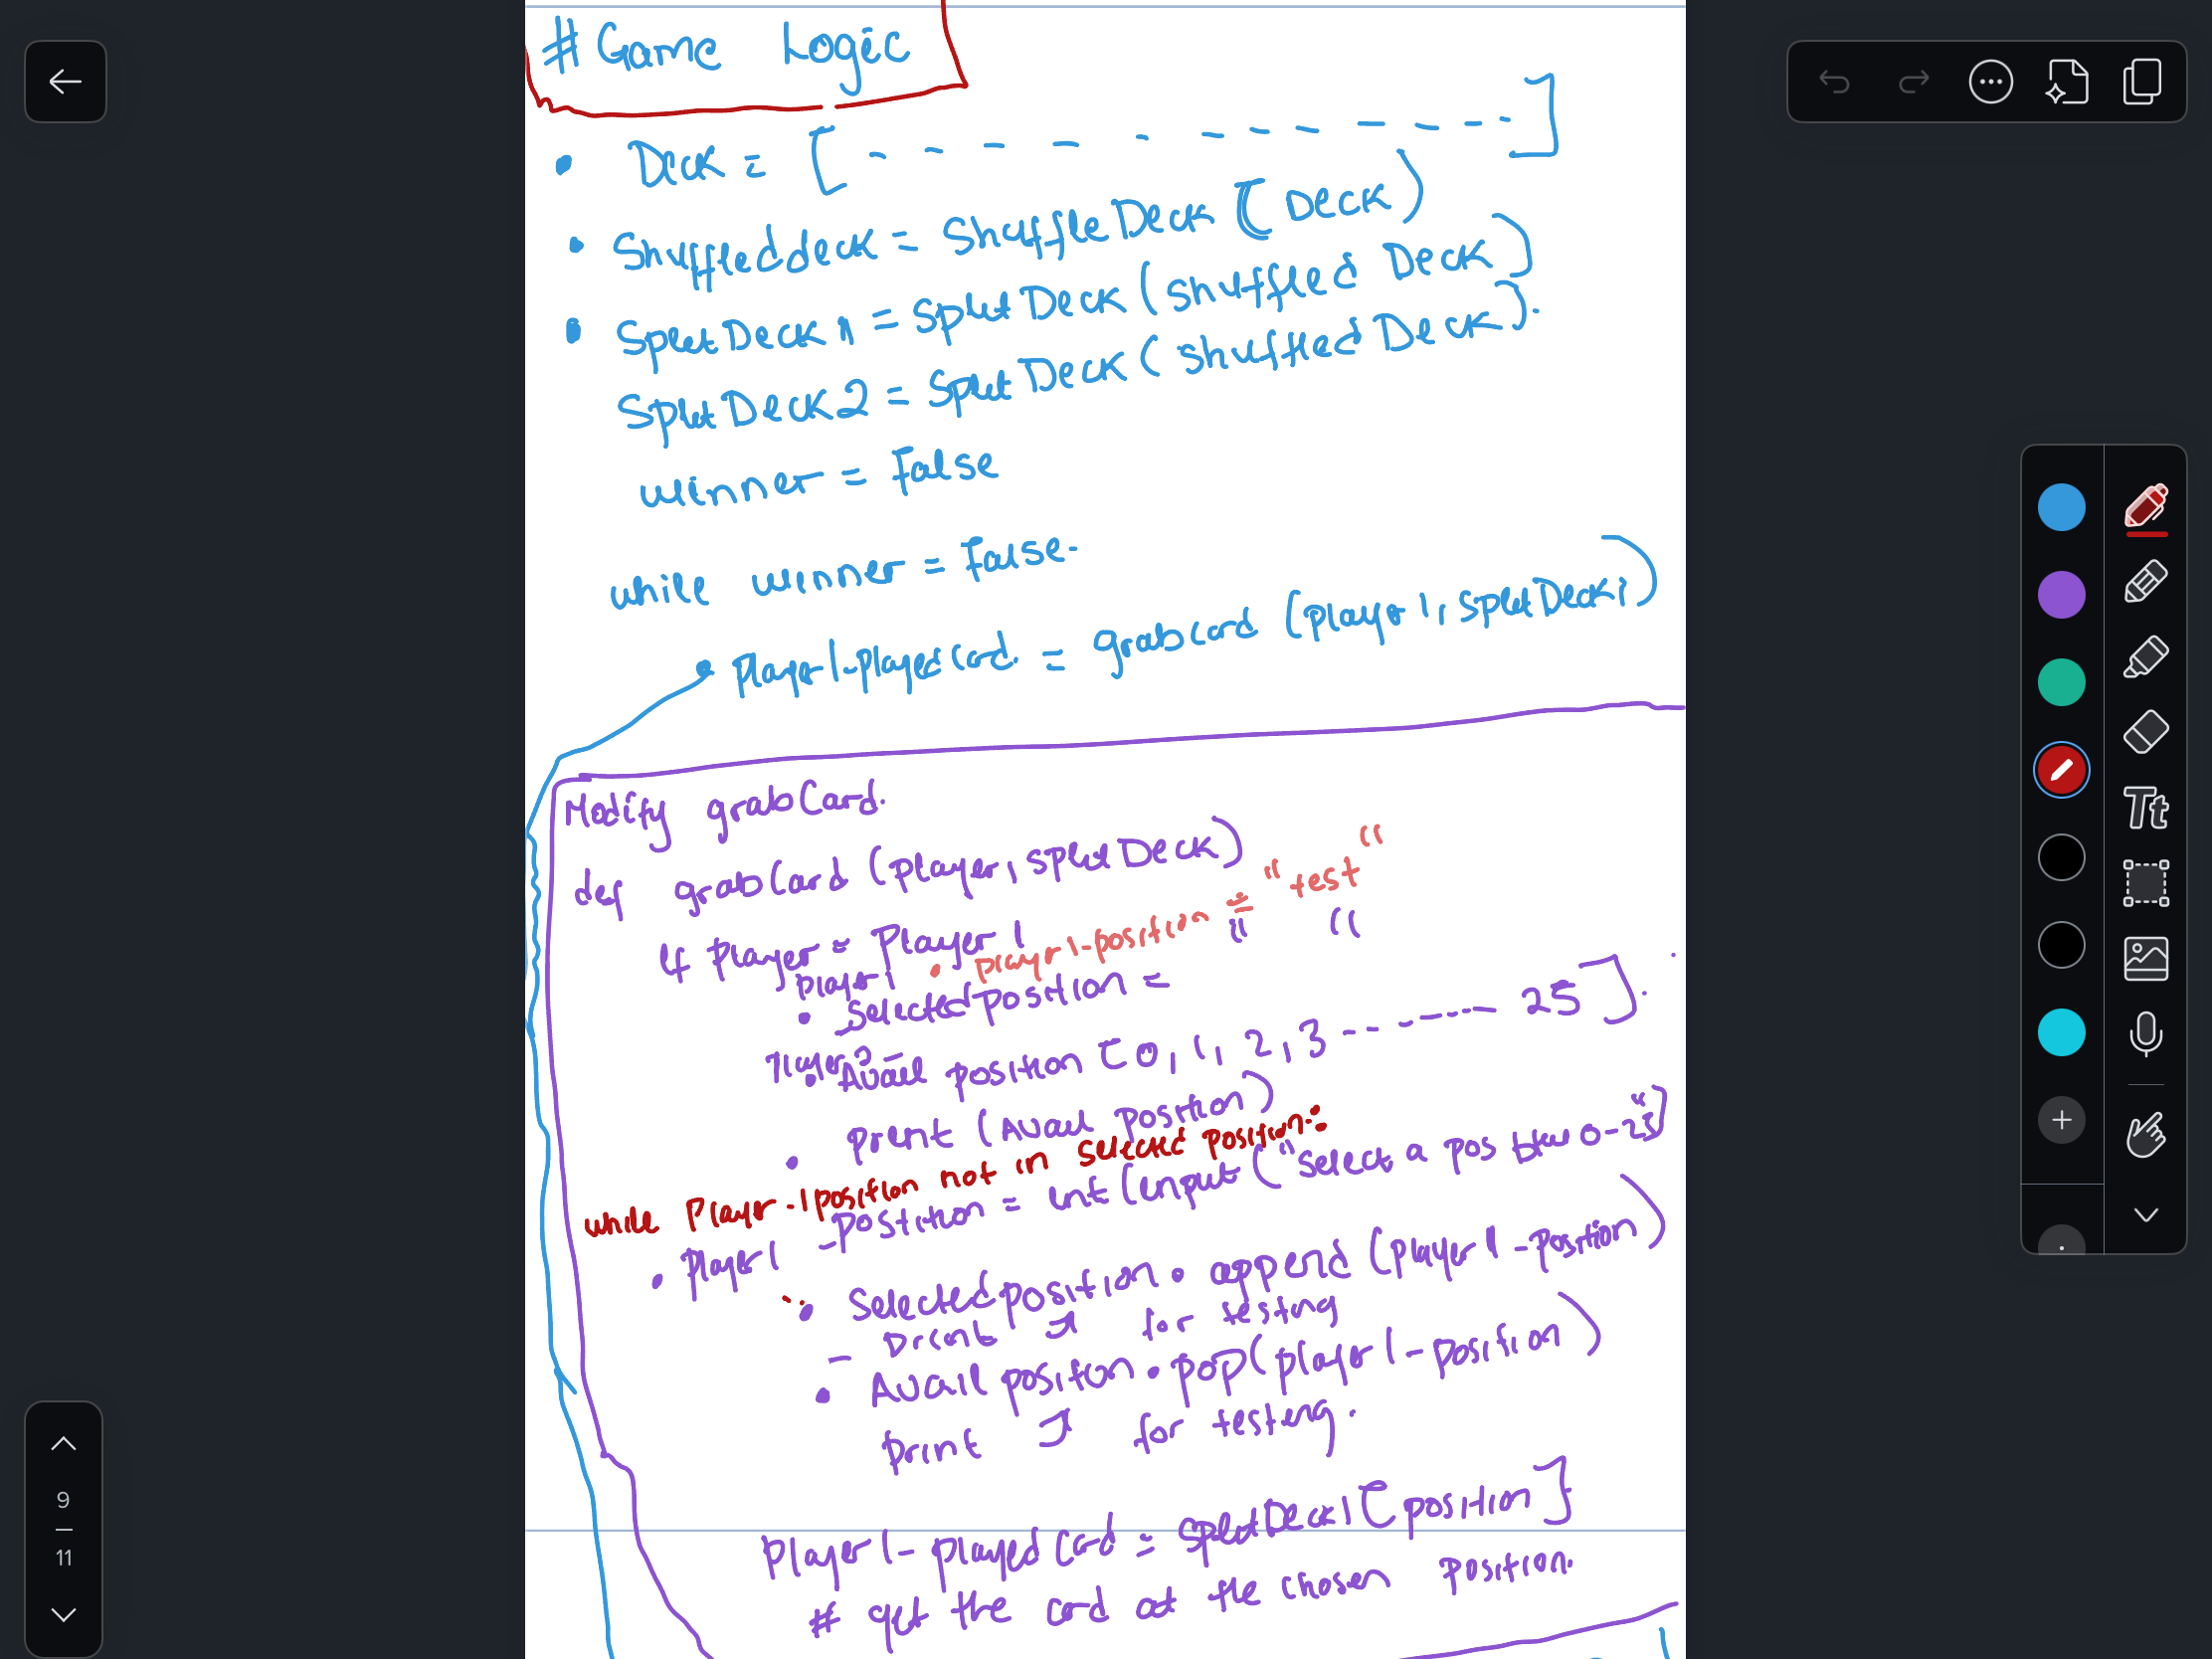 # Game Logic
• Deck = [ - - - - - - - - - - - ]
• Shuffleddeck = ShuffleDeck (Deck)
• SplitDeck1 = SplitDeck (shuffled Deck)
SplitDeck2 = SplitDeck (shuffled Deck).
winner = False
while winner = False.
• Player1-playedcard. = grabcard (player1, splitDeck1)
Modify grabCard.
def grabCard (player, splitDeck)
If Player = Player1
• player1-position = "test"
" "
player1
• Selectedposition =
Player2 =
• Avail position [0, 1, 2, 3 - - - - - - - - 25].
• print (Avail Position)
while Player-1position not in selected position:
• Player1 -position = int (input ("Select a pos btw 0-25"]
• Selectedposition. append (player1-position)
- Print for testing
• Avail position. pop(player1-position)
print for testing.
Player1-playedCard = splitDeck1[position]
# get the card at the chosen position.
Tt
9
11